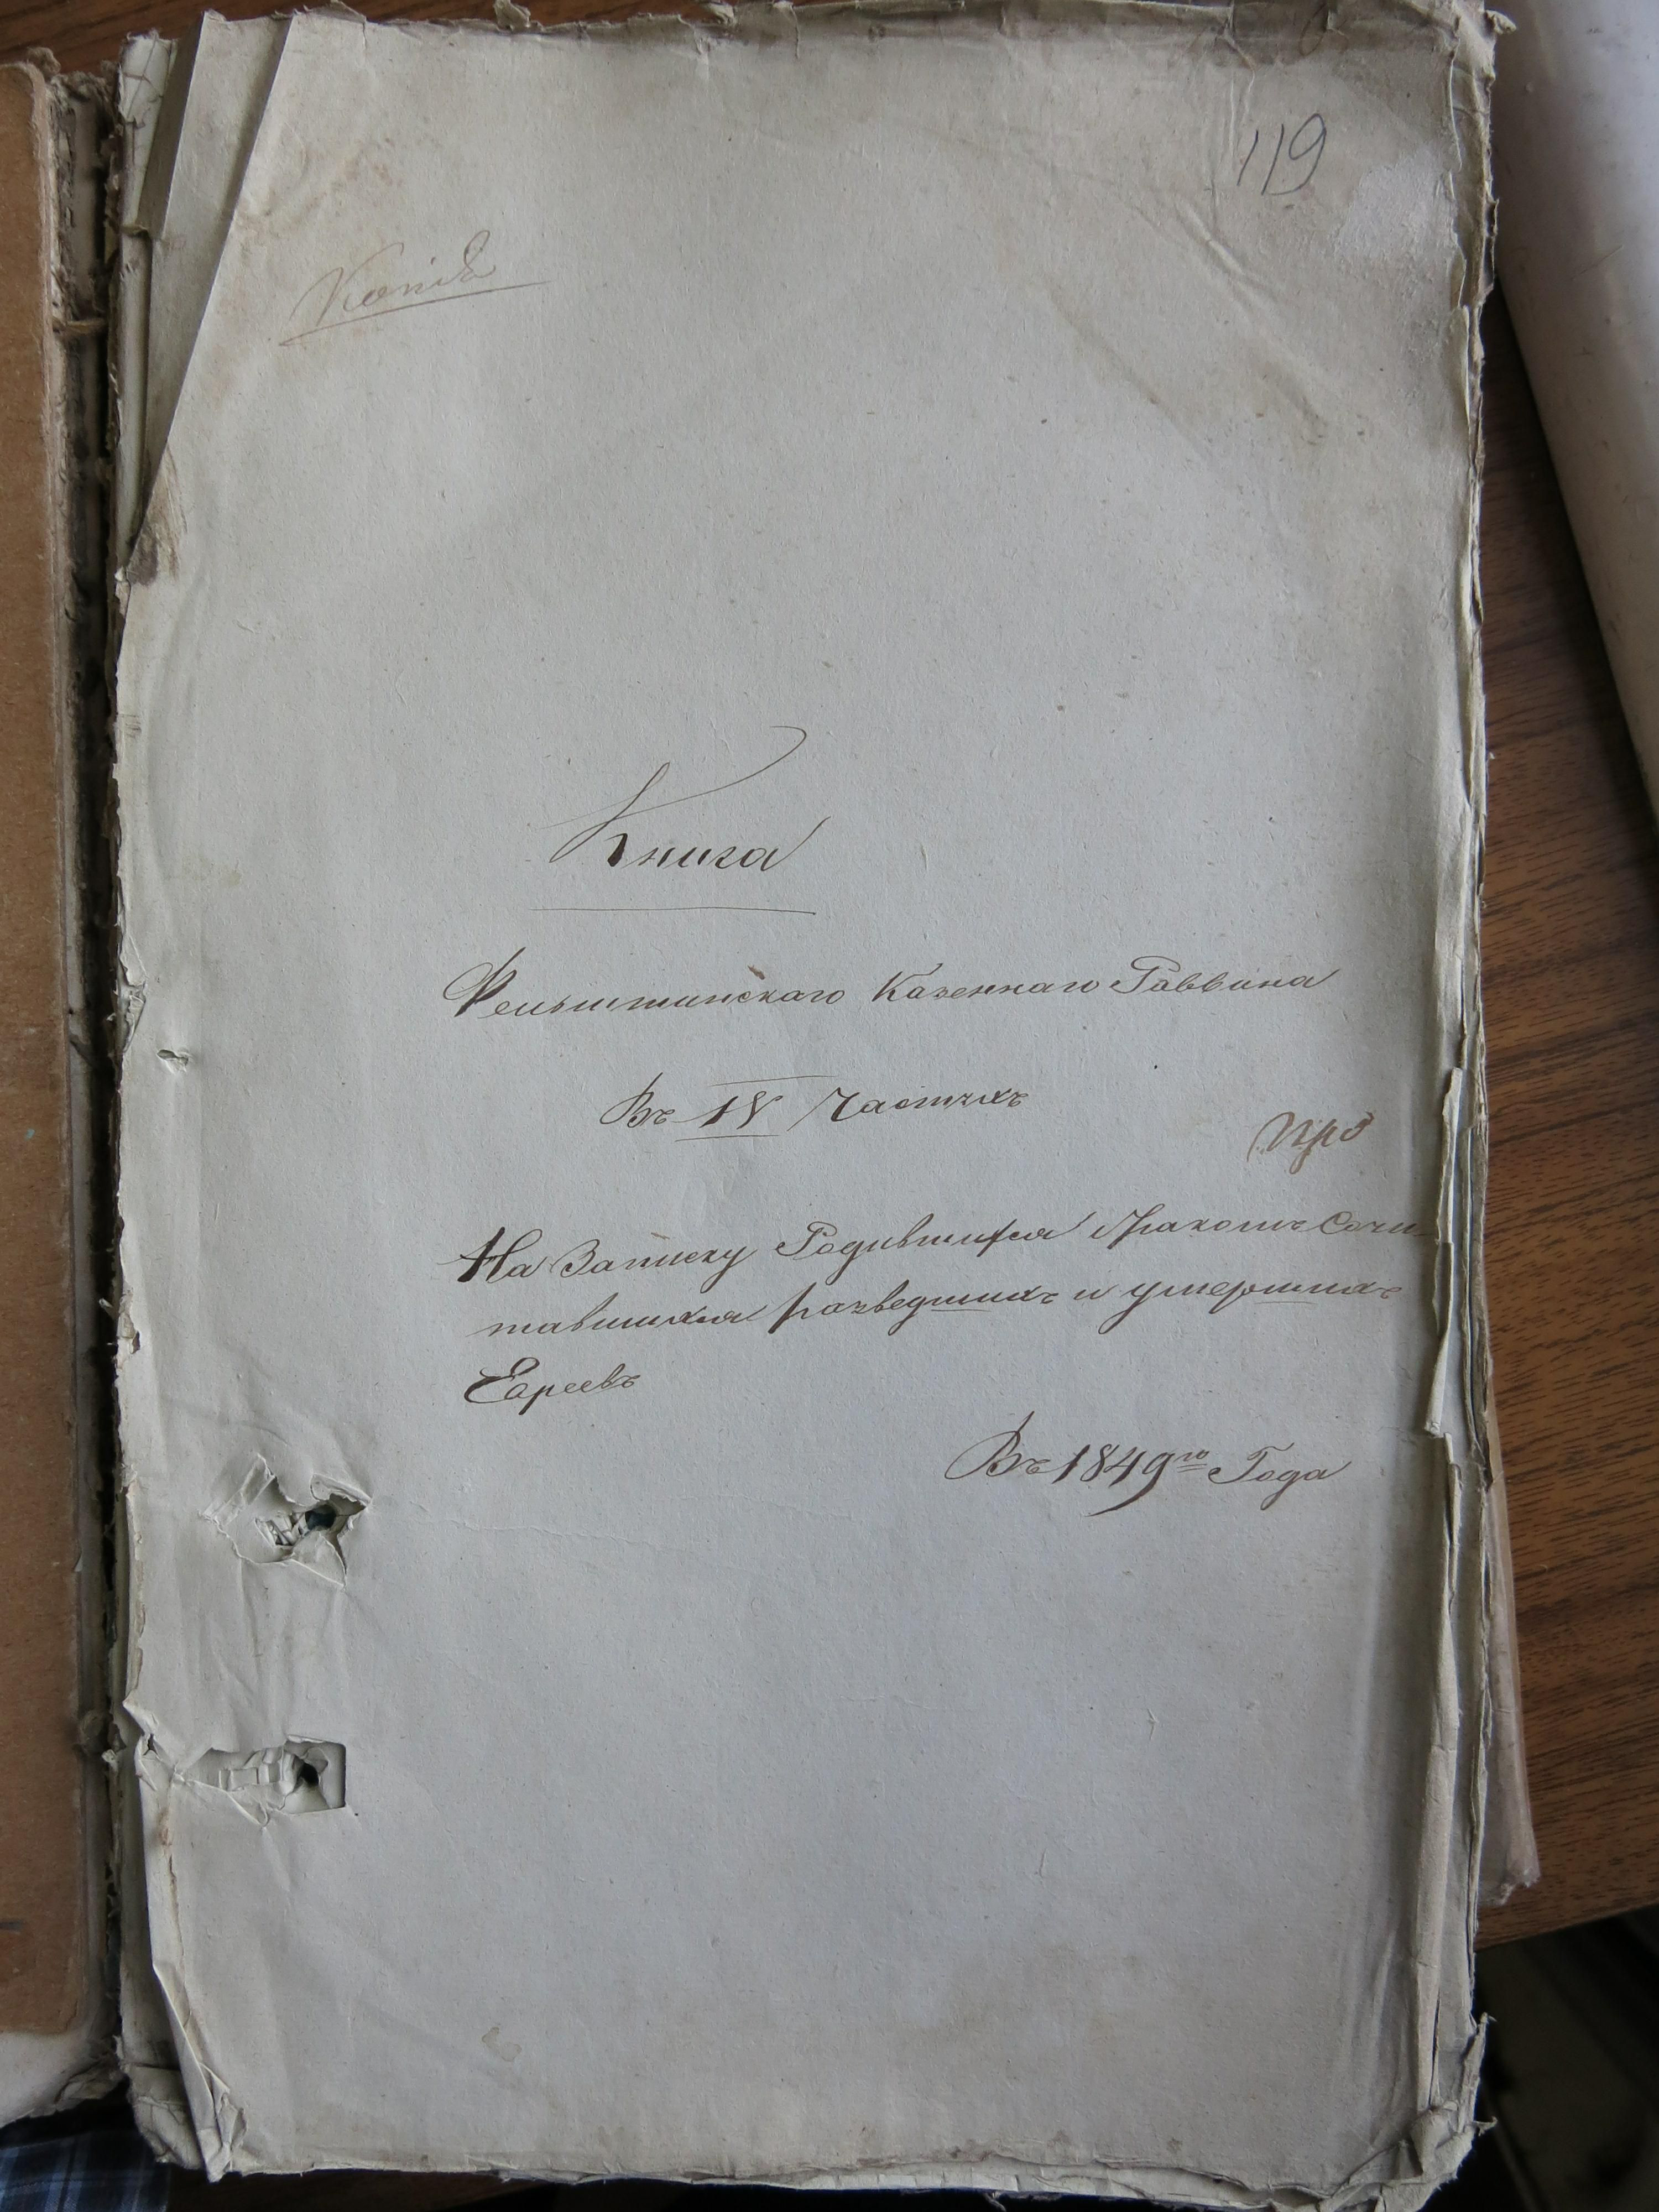 119
Копія
Книга
Фельштинскаго Казеннаго Раввина
Въ IV Частяхъ
про
На Записку Родившихся Бракомъ Сочи-
тавшихся разведшихъ и умершихъ
Евреевъ
Въ 1849го Года